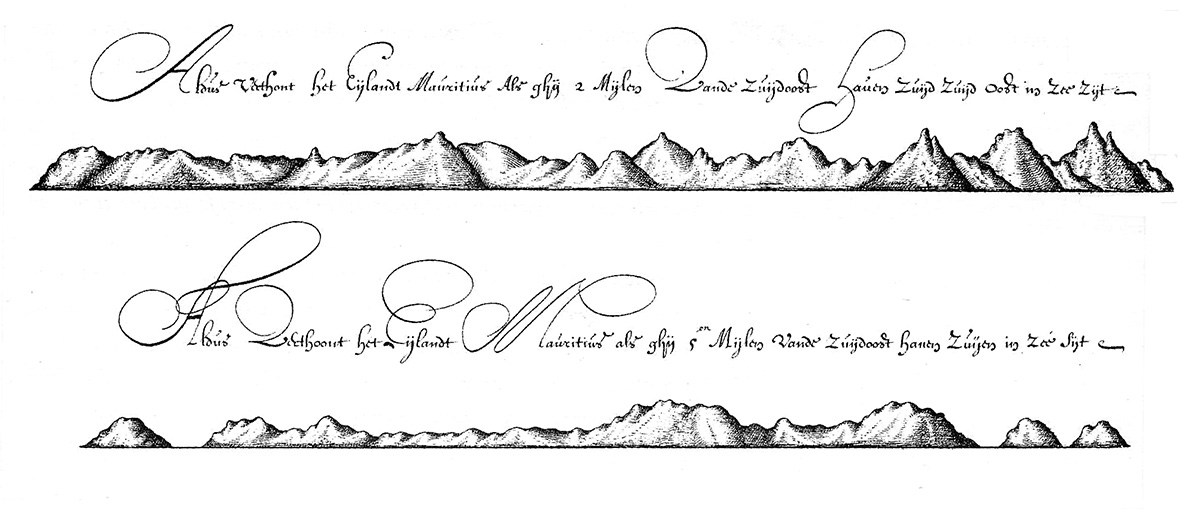 Aldus Verthont het Eijlandt Mauritius Als ghij 2 Mijlen Vande Zuijdoost Haven Zuijd Zuijd Oost in Zee Zijt
Aldus Verthoont het Eijlandt Mauritius als ghij 5 en Mijlen Vande Zuijdoost haven Zuijen in Zée Sijt